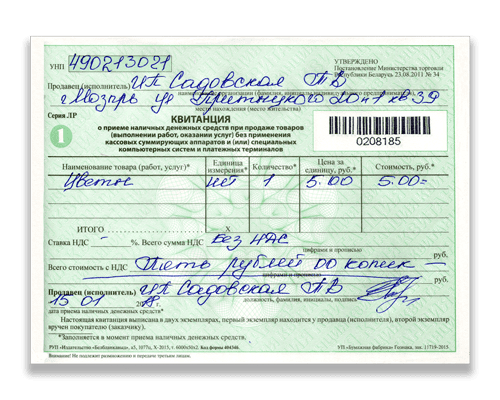 УНП 490213021
УТВЕРЖДЕНО
Постановление Министерства торговли
Республики Беларусь 23.08.2011 № 34
Продавец (исполнитель) ИП Садовская ТВ
г Мозырь ул Притыцкого 20-41 кв 39
место нахождения (место жительства)
Серия ЛР
КВИТАНЦИЯ
о приеме наличных денежных средств при продаже товаров
(выполнении работ, оказании услуг) без применения
кассовых суммирующих аппаратов и (или) специальных
компьютерных систем и платежных терминалов
1
0208185
Наименование товара (работ, услуг)* Единица измерения* Количество* Цена за единицу, руб.* Стоимость, руб.*
Цветы шт 1 5.00 5.00=
ИТОГО X X
Ставка НДС – %. Всего сумма НДС Без НДС
цифрами и прописью
Всего стоимость с НДС Пять рублей 00 копеек руб.
цифрами и прописью
Продавец (исполнитель) ИП Садовская ТВ
15 01 2018
должность, фамилия, инициалы, подпись
дата приема наличных денежных средств*
Настоящая квитанция выписана в двух экземплярах, первый экземпляр находится у продавца (исполнителя), второй экземпляр
вручен покупателю (заказчику).
*Заполняется в момент приема наличных денежных средств.
Внимание! Не подлежит размножению и передаче третьим лицам.